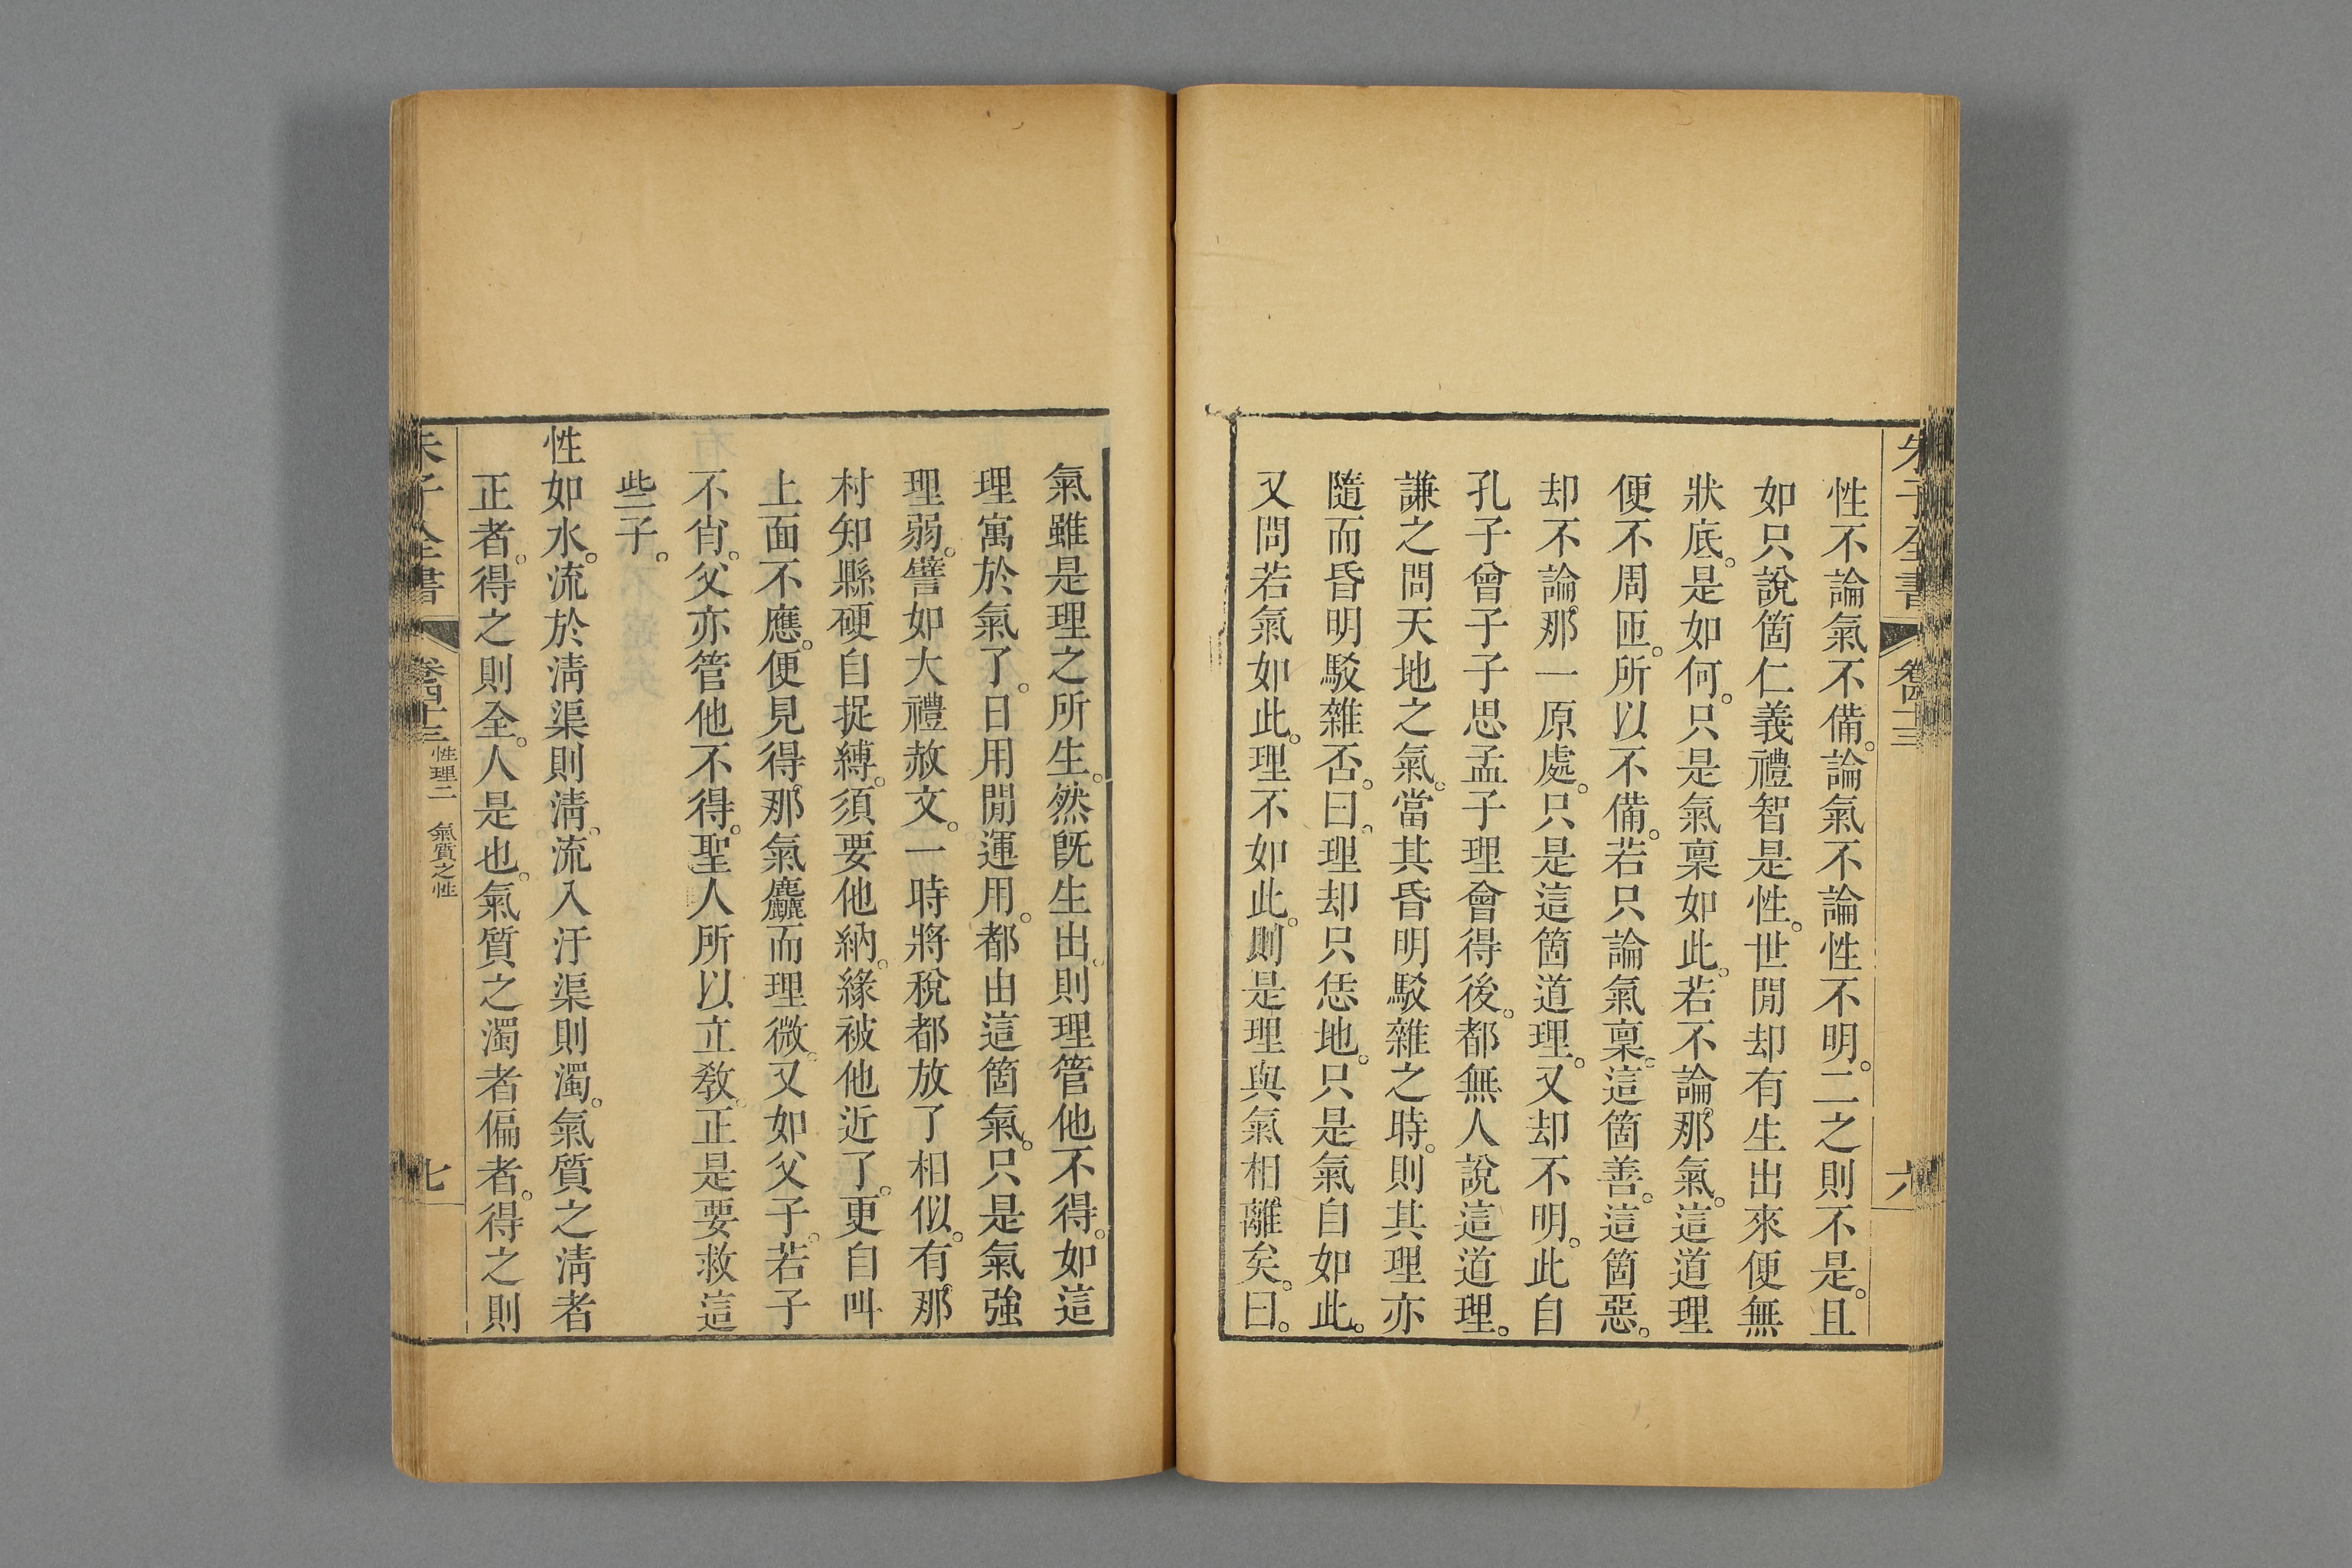 朱子全書 卷四十三 六
性不論氣不備。論氣不論性不明。二之則不是。且
如只說箇仁義禮智是性。世閒却有生出來便無
狀底。是如何。只是氣稟如此。若不論那氣。這道理
便不周匝。所以不備。若只論氣稟。這箇善。這箇惡。
却不論那一原處。只是這箇道理。又却不明。此自
孔子曾子子思孟子理會得後。都無人說這道理。
謙之問天地之氣。當其昏明駁雜之時。則其理亦
隨而昏明駁雜否。曰。理却只恁地。只是氣自如此。
又問若氣如此。理不如此。則是理與氣相離矣。曰。
氣雖是理之所生。然既生出。則理管他不得。如這
理寓於氣了。日用閒運用。都由這箇氣。只是氣強
理弱。譬如大禮赦文。一時將稅都放了相似。有那
村知縣硬自捉縛。須要他納。緣被他近了。更自叫
上面不應。便見得那氣麤而理微。又如父子。若子
不肖。父亦管他不得。聖人所以立教。正是要救這
些子。
性如水。流於清渠則清。流入汙渠則濁。氣質之清者
正者。得之則全。人是也。氣質之濁者偏者。得之則
朱子全書 卷四十三 性理二 氣質之性 七